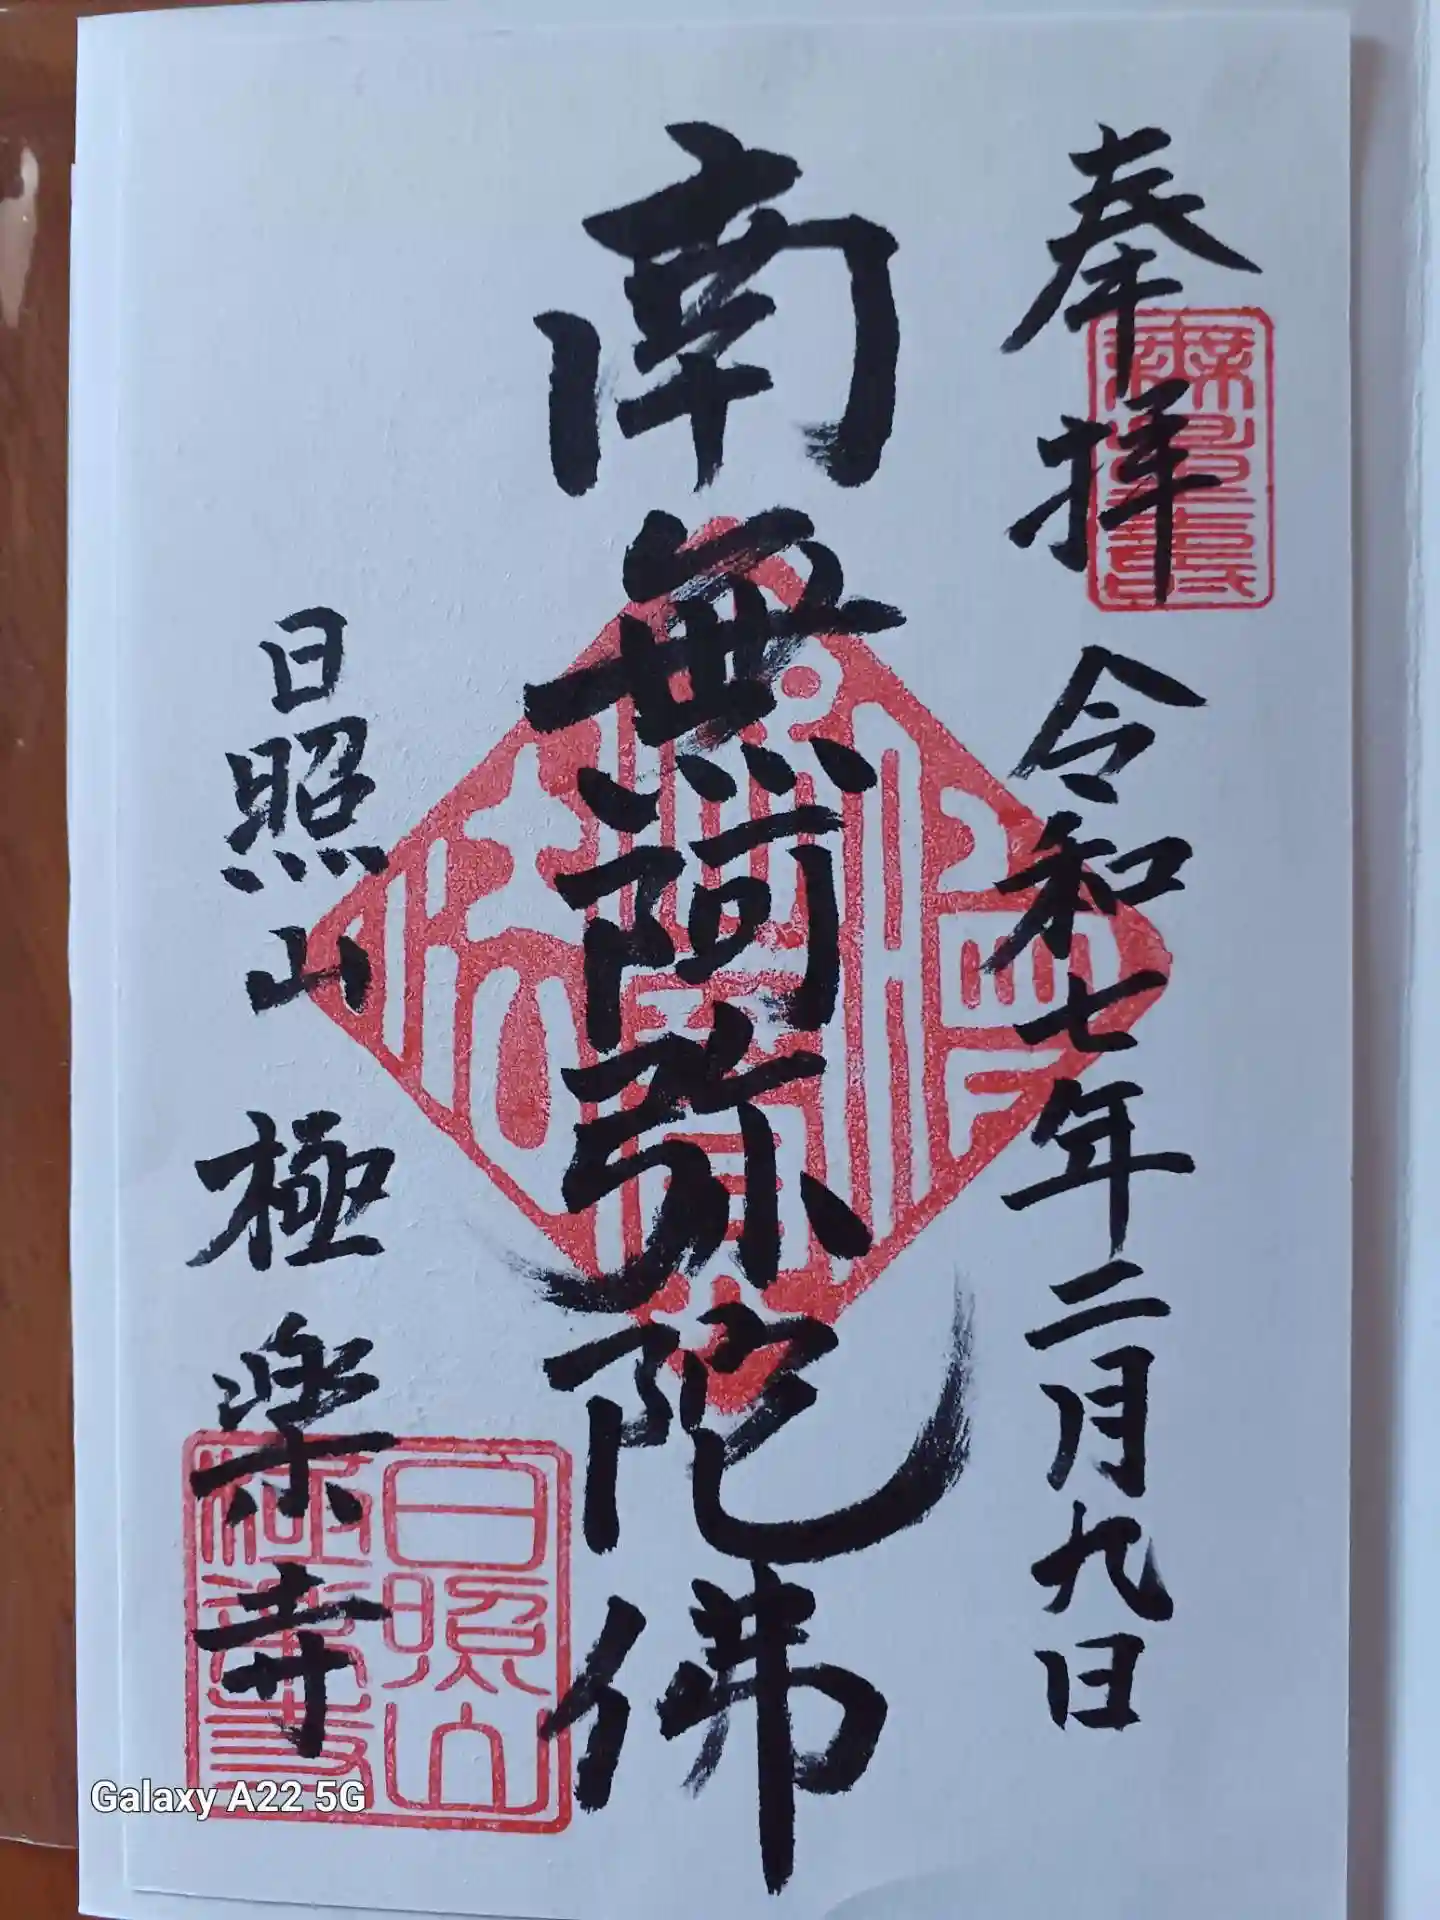 奉拝 令和七年二月九日
南無阿弥陀佛
日照山 極楽寺
日照山
極楽寺
Galaxy A22 5G